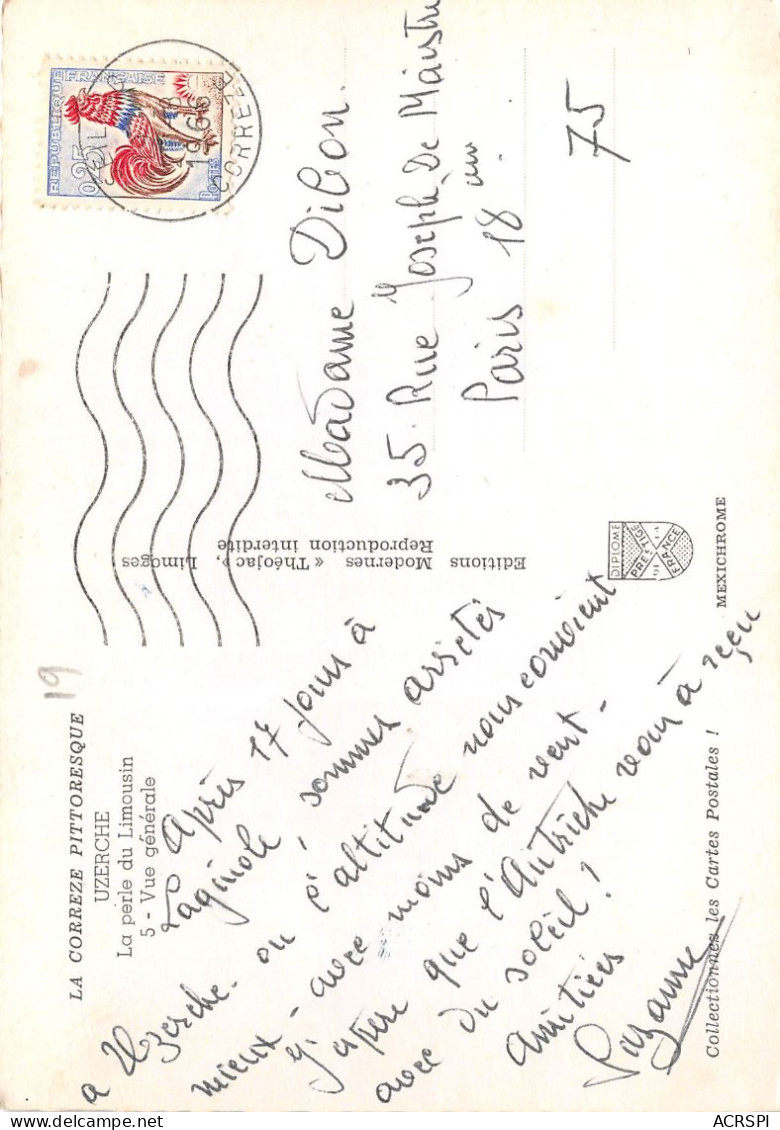 LA CORREZE PITTORESQUE
UZERCHE
La perle du Limousin
5 - Vue générale
19
Après 17 jours à
Laginole, sommes arrêtés
a Uzerche. où l'altitude nous convient
mieux - avec moins de vent -
J'espère que l'Autriche vous à reçu
avec du soleil !
Amitiés
Suzanne
Editions
Modernes « Théojac », Limoges
Reproduction interdite
REPUBLIQUE FRANÇAISE
0,25
POSTES
1966
CORREZE
Madame Dibon.
35. Rue Joseph De Maistre
Paris 18 em
75
DIPLOME
PRESTIGE
DE LA
FRANCE
MEXICHROME
Collectionnes les Cartes Postales !
ACRSPI